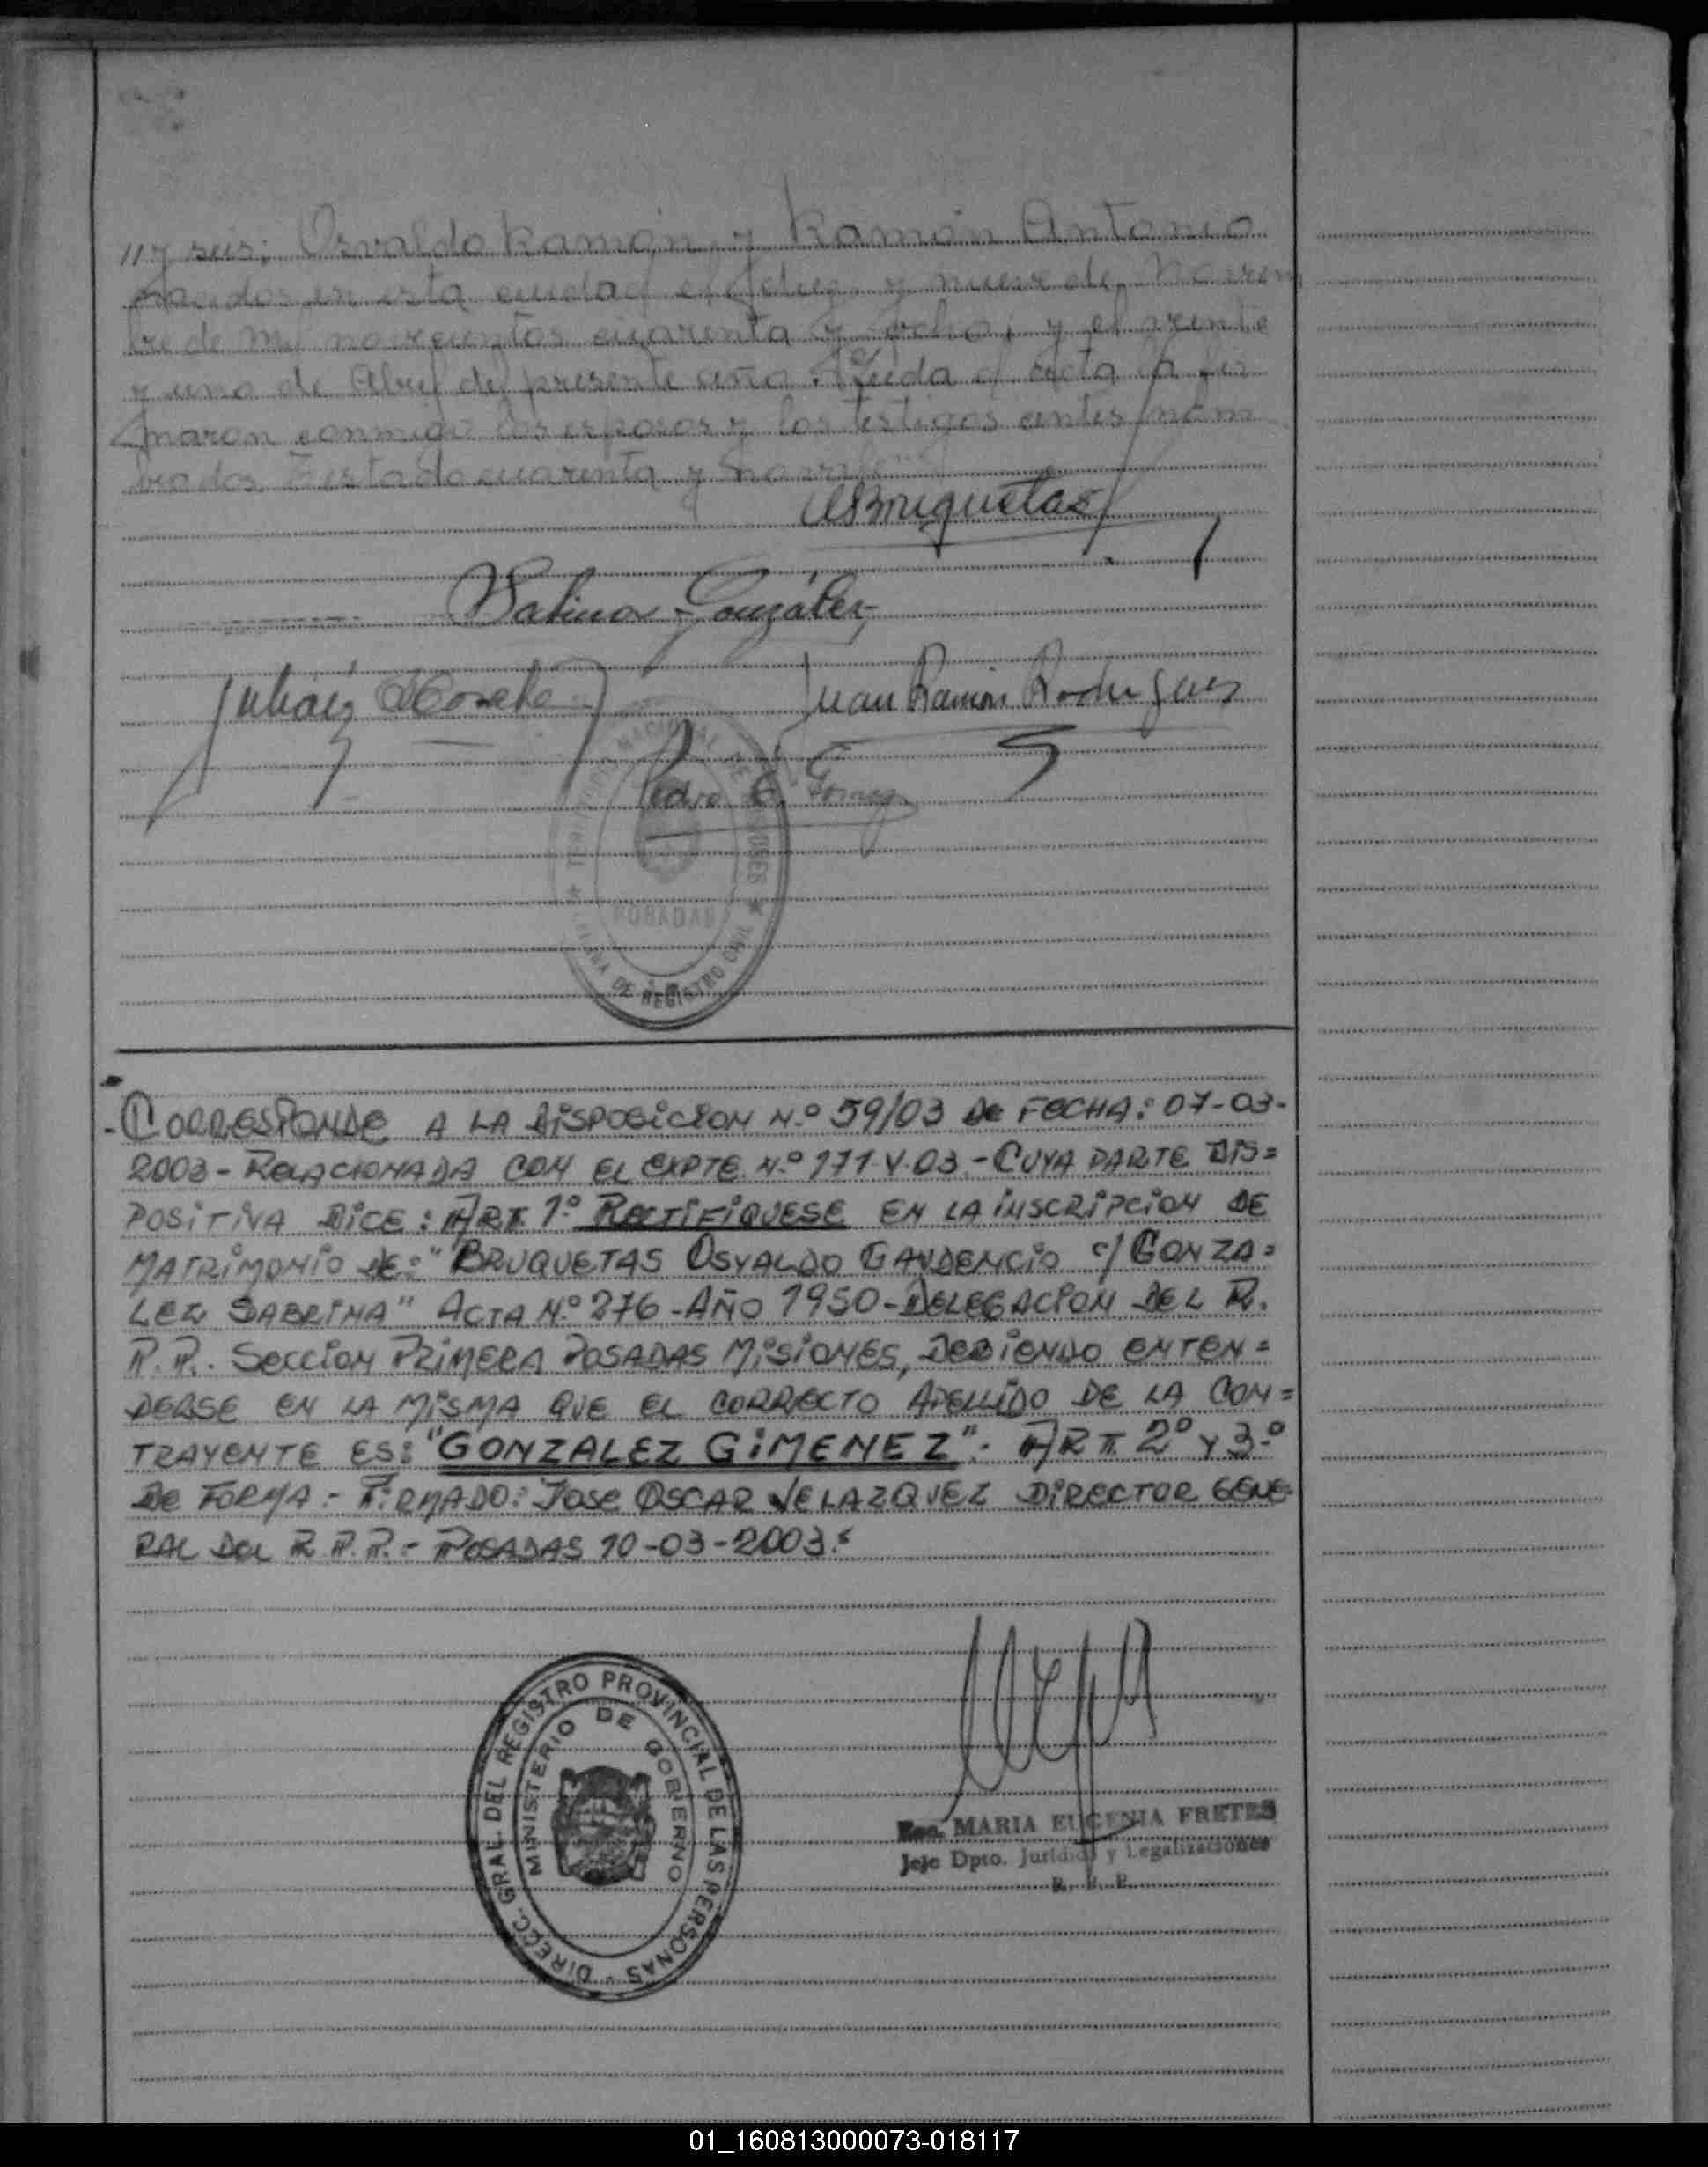 y seis: Osvaldo Ramón y Ramón Antonio
nacidos en esta ciudad el diez y nueve de Noviem
bre de mil novecientos cuarenta y ocho, y el veinte
y uno de Abril del presente año. Leída el acta la fir
maron conmigo los esposos y los testigos antes nom
brados. Testado cuarenta y
Bruquetas
González
Julián
Juan Ramón Rodríguez
Pedro E. Gómez
NACIONAL DE MISIONES
POSADAS
DE REGISTRO CIVIL
-CORRESPONDE A LA DISPOSICION N.º 59/03 DE FECHA: 07-03-
2003- RELACIONADA CON EL EXPTE. N.º 171-V-03.- CUYA PARTE DIS=
POSITIVA DICE: ART. 1º RECTIFIQUESE EN LA INSCRIPCION DE
MATRIMONIO DE: "BRUQUETAS OSVALDO GAUDENCIO c/ GONZA=
LEZ SABRINA" ACTA N.º 276-AÑO 1950-DELEGACION DEL R.
P.P. SECCION PRIMERA POSADAS MISIONES, DEBIENDO ENTEN=
DERSE EN LA MISMA QUE EL CORRECTO APELLIDO DE LA CON=
TRAYENTE ES: "GONZALEZ GIMENEZ". ART. 2º Y 3.º
DE FORMA.- FIRMADO: JOSE OSCAR VELAZQUEZ DIRECTOR GENE-
RAL DEL R.P.P.- POSADAS 10-03-2003.-
DIRECC. GRAL. DEL REGISTRO PROVINCIAL DE LAS PERSONAS -
MINISTERIO DE GOBIERNO
MARIA EUGENIA FRETES
Jefe Dpto. Jurídico y Legalizaciones
R. P. P.
01_160813000073-018117